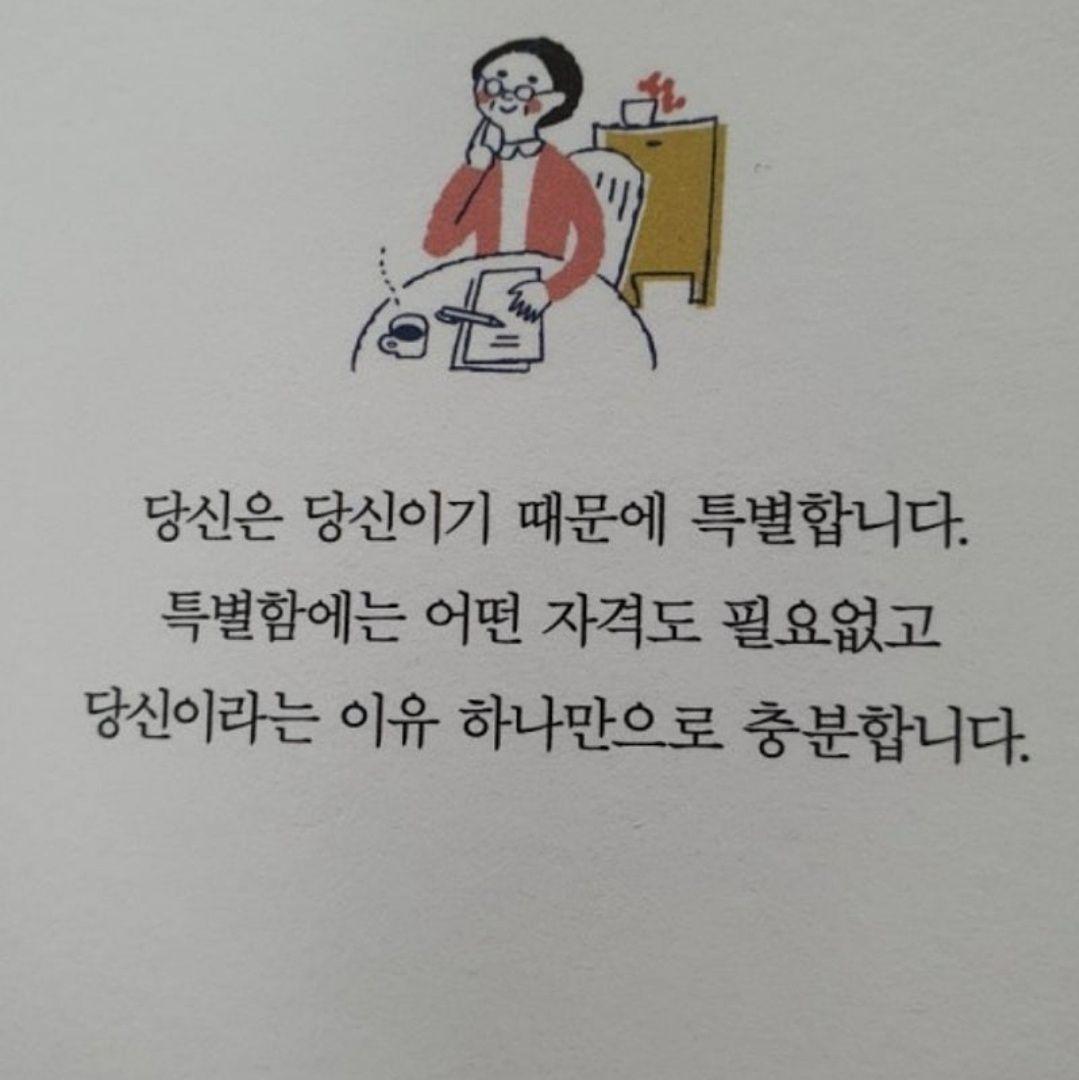 당신은 당신이기 때문에 특별합니다.
특별함에는 어떤 자격도 필요없고
당신이라는 이유 하나만으로 충분합니다.